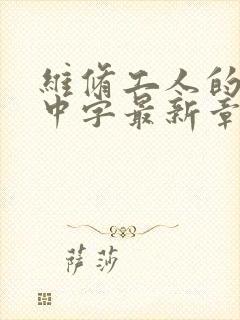 維脩工人的
中字最新章
萨莎